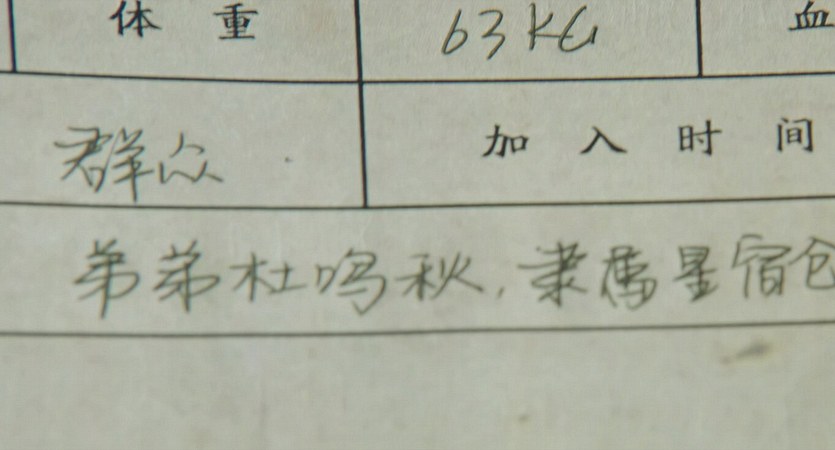 体重 63KG 血
群众 加入时间
弟弟杜鸣秋,隶属星宿仓